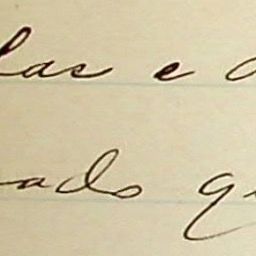 las e
ado q